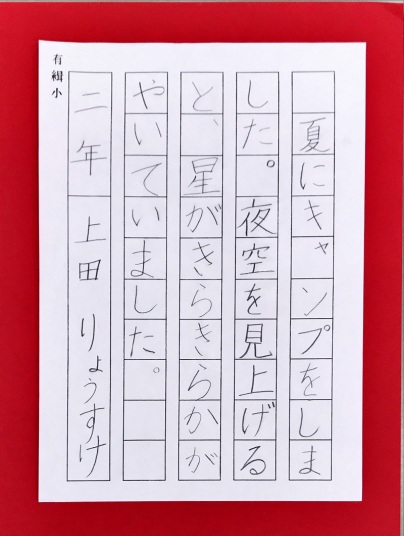 夏にキャンプをしま
した。夜空を見上げる
と、星がきらきらかが
やいていました。
二年 上田 りょうすけ
有緝小